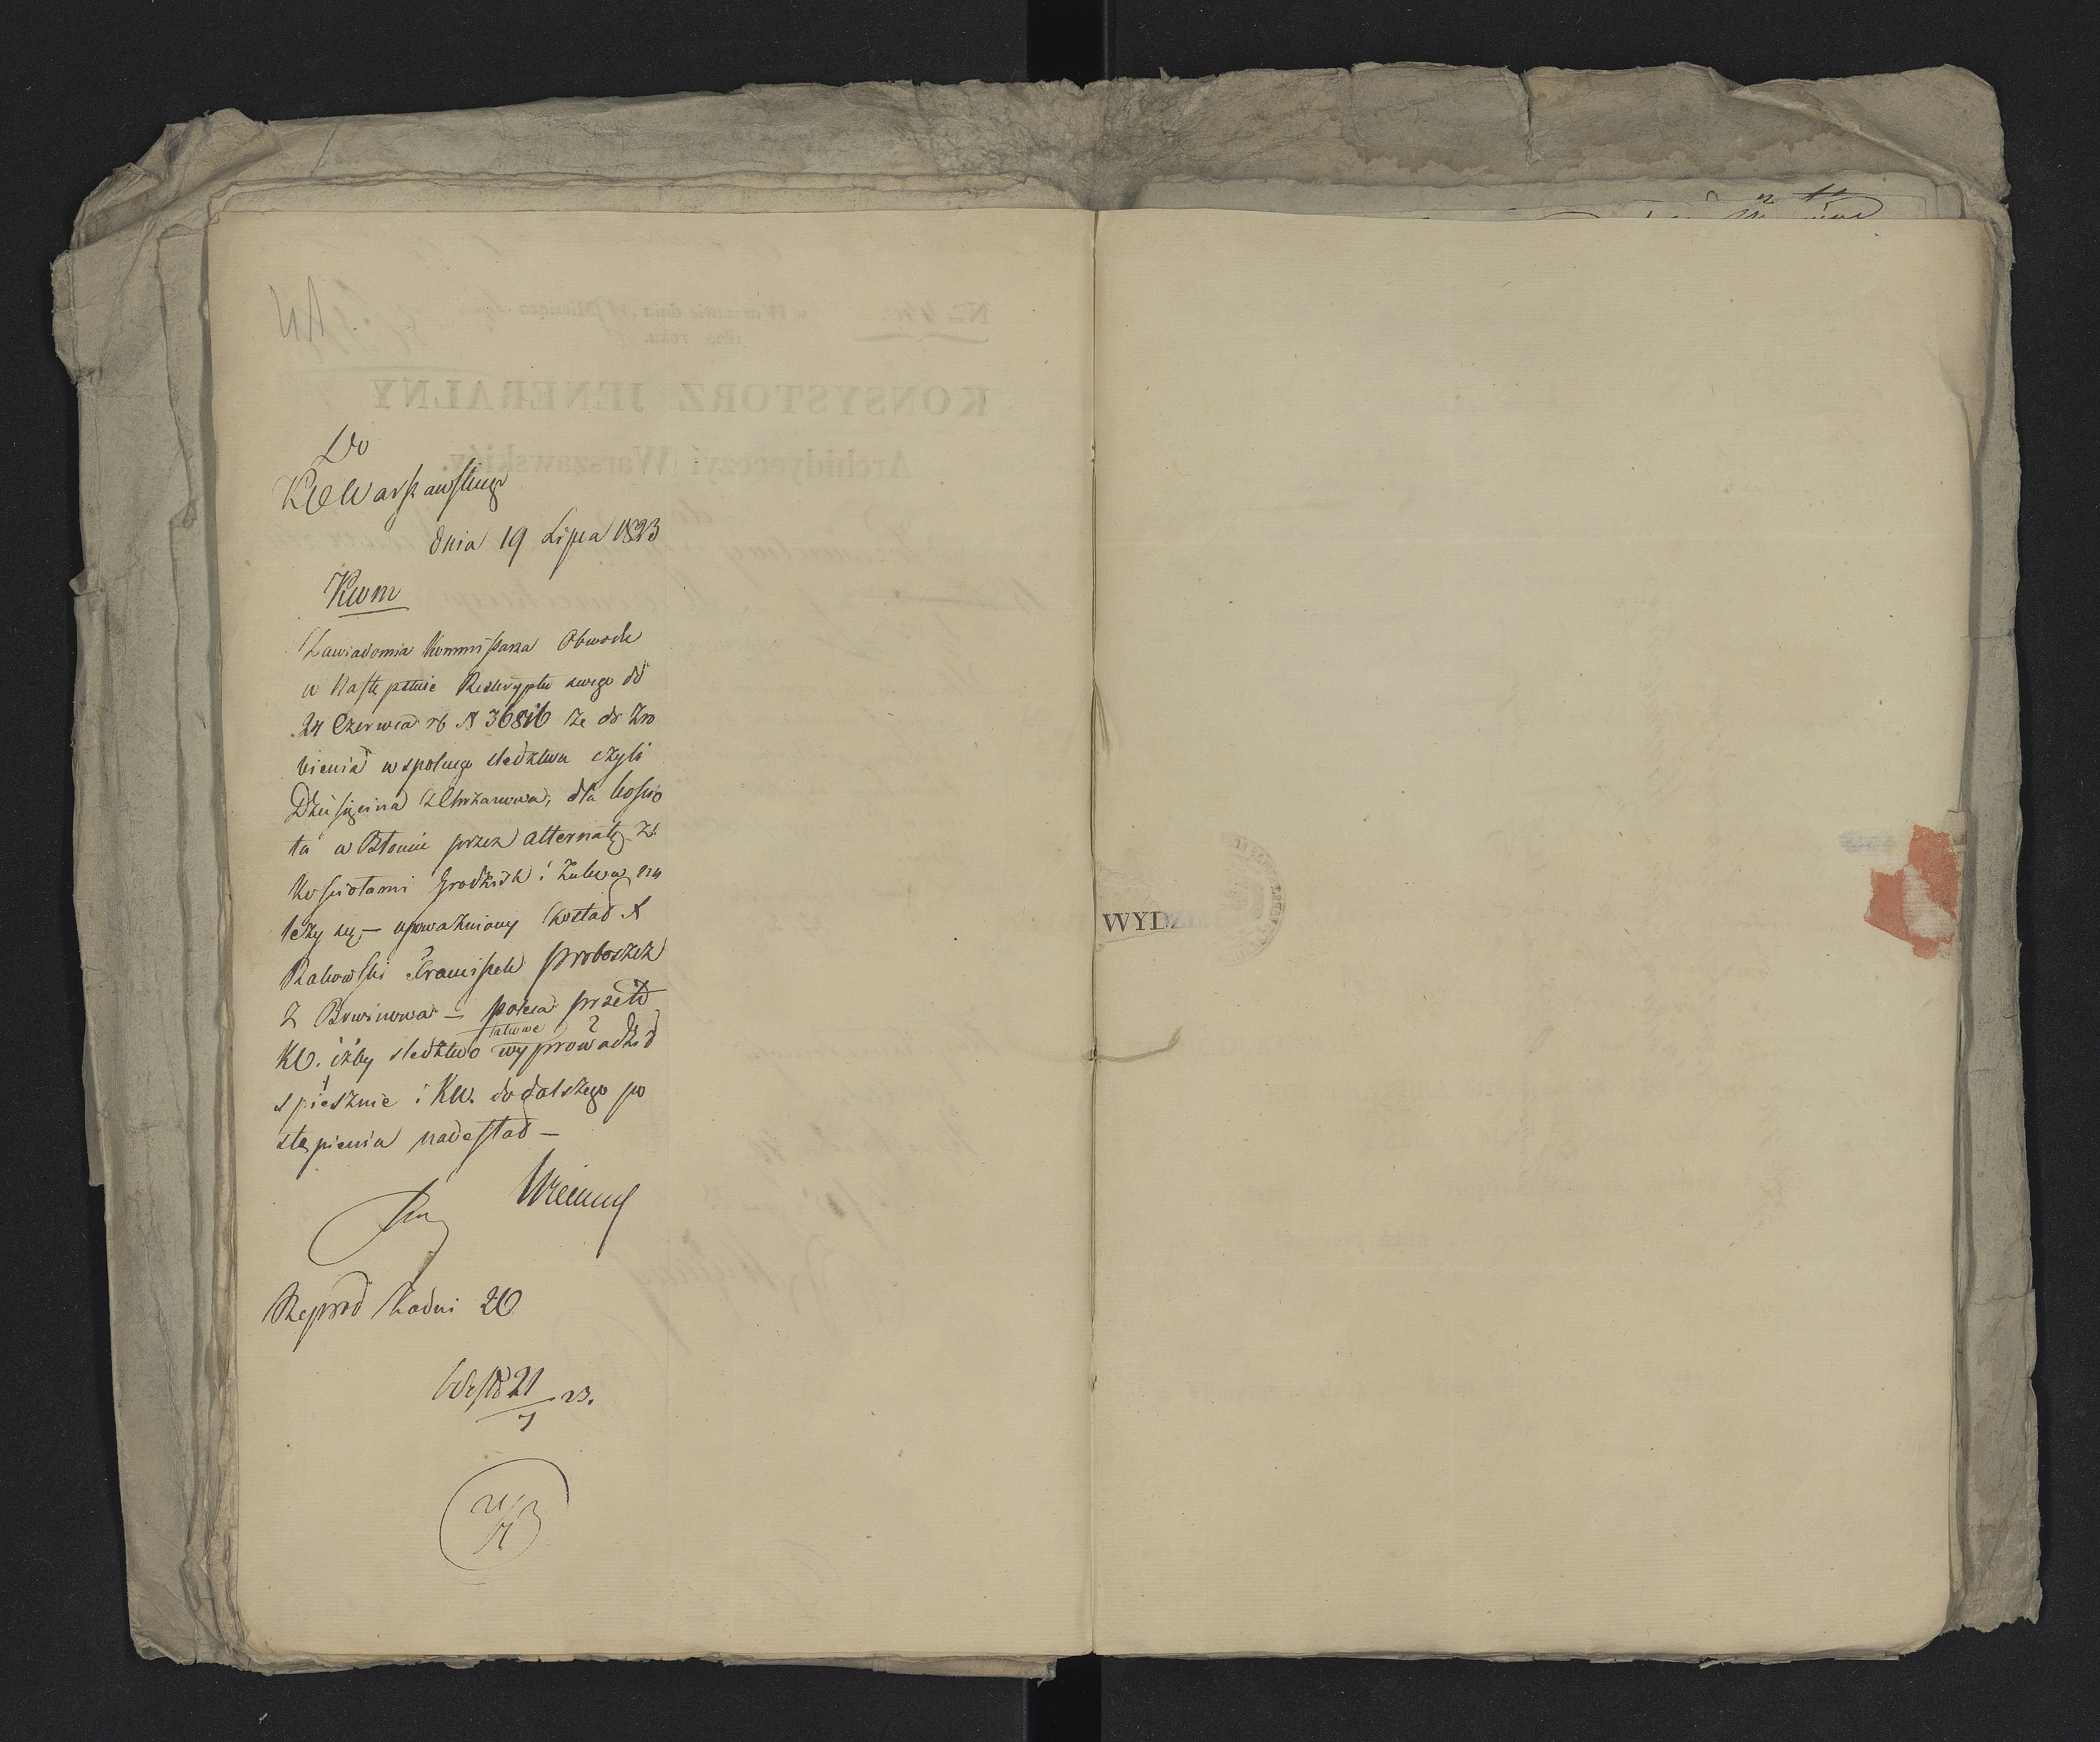 Do
KO Warszawskiego
dnia 19 Lipca 1823
Kwm
Zawiadomia Kommissarza Obwodu
w Następstwie Reskryptu swego dd
24 Czerwca rb N 36816 że do zro
bienia wspolnego sledztwa czyli
Dziesięcina z Chrzanowa, dla kościo
ła w Błoniu przez alternatę z
Kościołami Grodzisk i Żukow na
leży się — upoważniony został X
Rakowski Franciszek proboszcz
z Brwinowa — poleca przeto
KO. iżby sledztwo takowe wyprowadził
spiesznie i KW. do dalszego po
stępienia nadesłał —
Reprod Zadni 20
21/7 23.
WYDZI